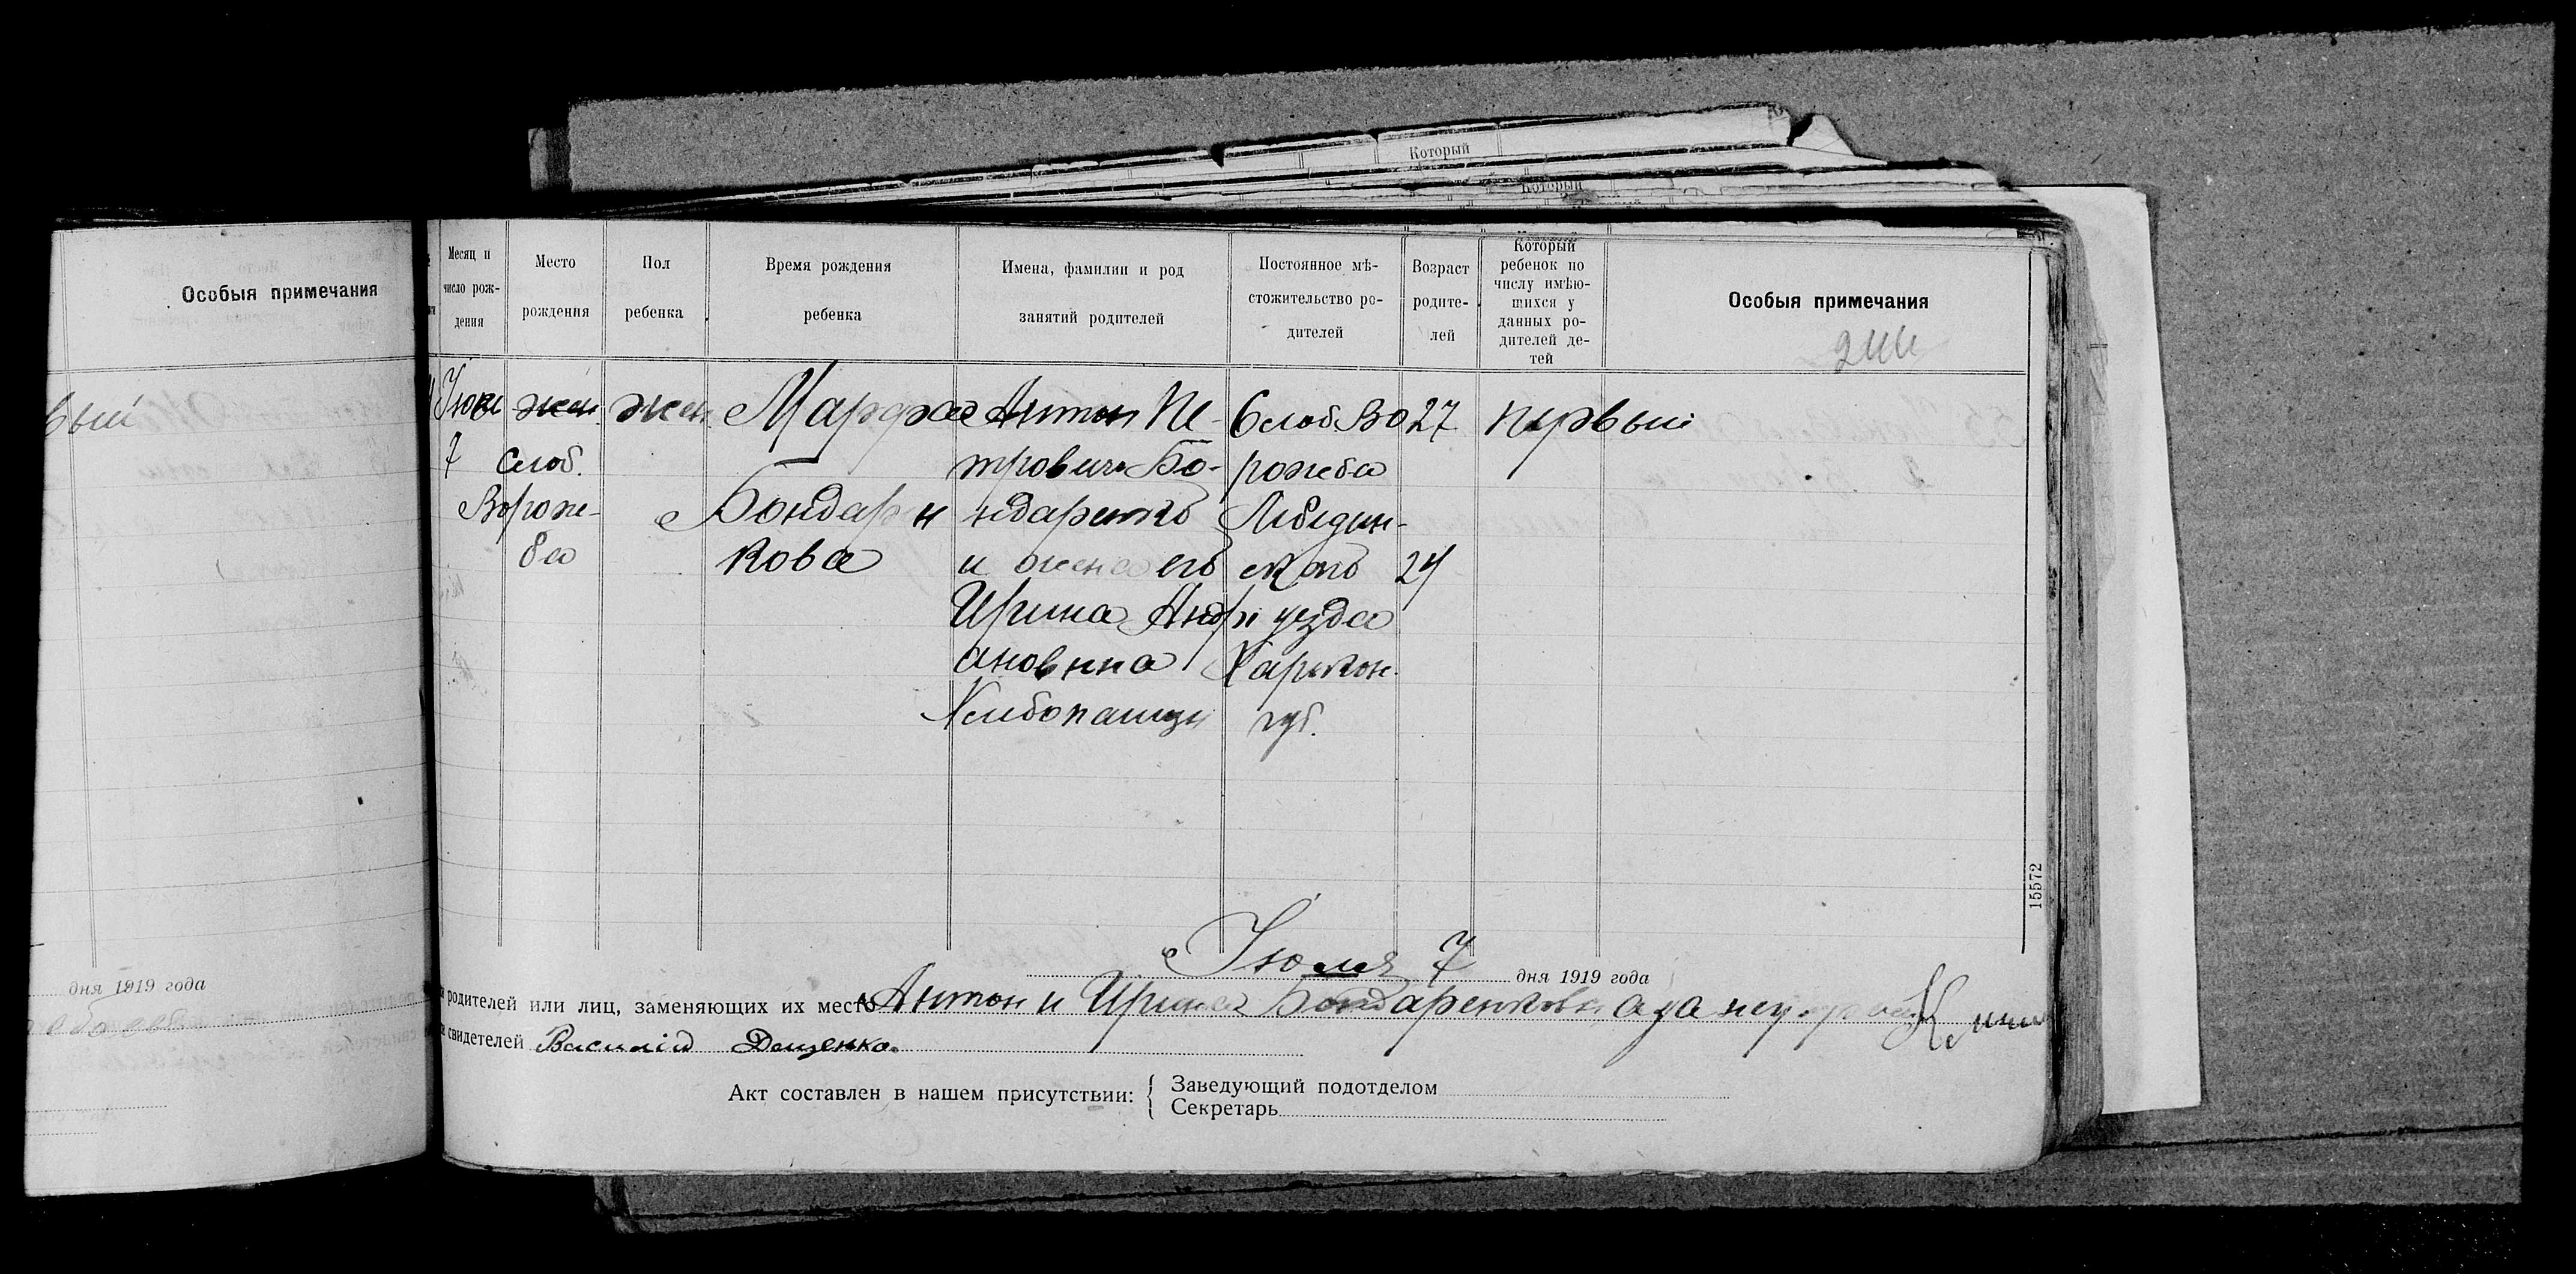 Который
Который
Особыя примечания
вый
дня 1919 года
Месяц и число рож- дения
Место рождения
Пол ребенка
Время рождения ребенка
Имена, фамилии и род занятий родителей
Постоянное мѣ- стожительство ро- дителей
Возраст родите- лей
Который ребенок по числу имѣю- щихся у данных ро- дителей де- тей
Особыя примечания
7
слоб.
Ворож-
ба
жен.
Марфа
Бондарен
кова
Антон Пе-
трович Бо-
ндаренко
и жена его
Ирина Андрі
ановнна
Хлебопашцы
Слоб Во
рожба
Лебедин-
ского
уезда
Харькон.
губ.
27
24
первый
15572
Іюля 7 дня 1919 года
родителей или лиц, заменяющих их место Антон и Ирина Бондаренковы а за
свидетелей Василій Дащенко.
Акт составлен в нашем присутствии:
Заведующий подотделом
Секретарь